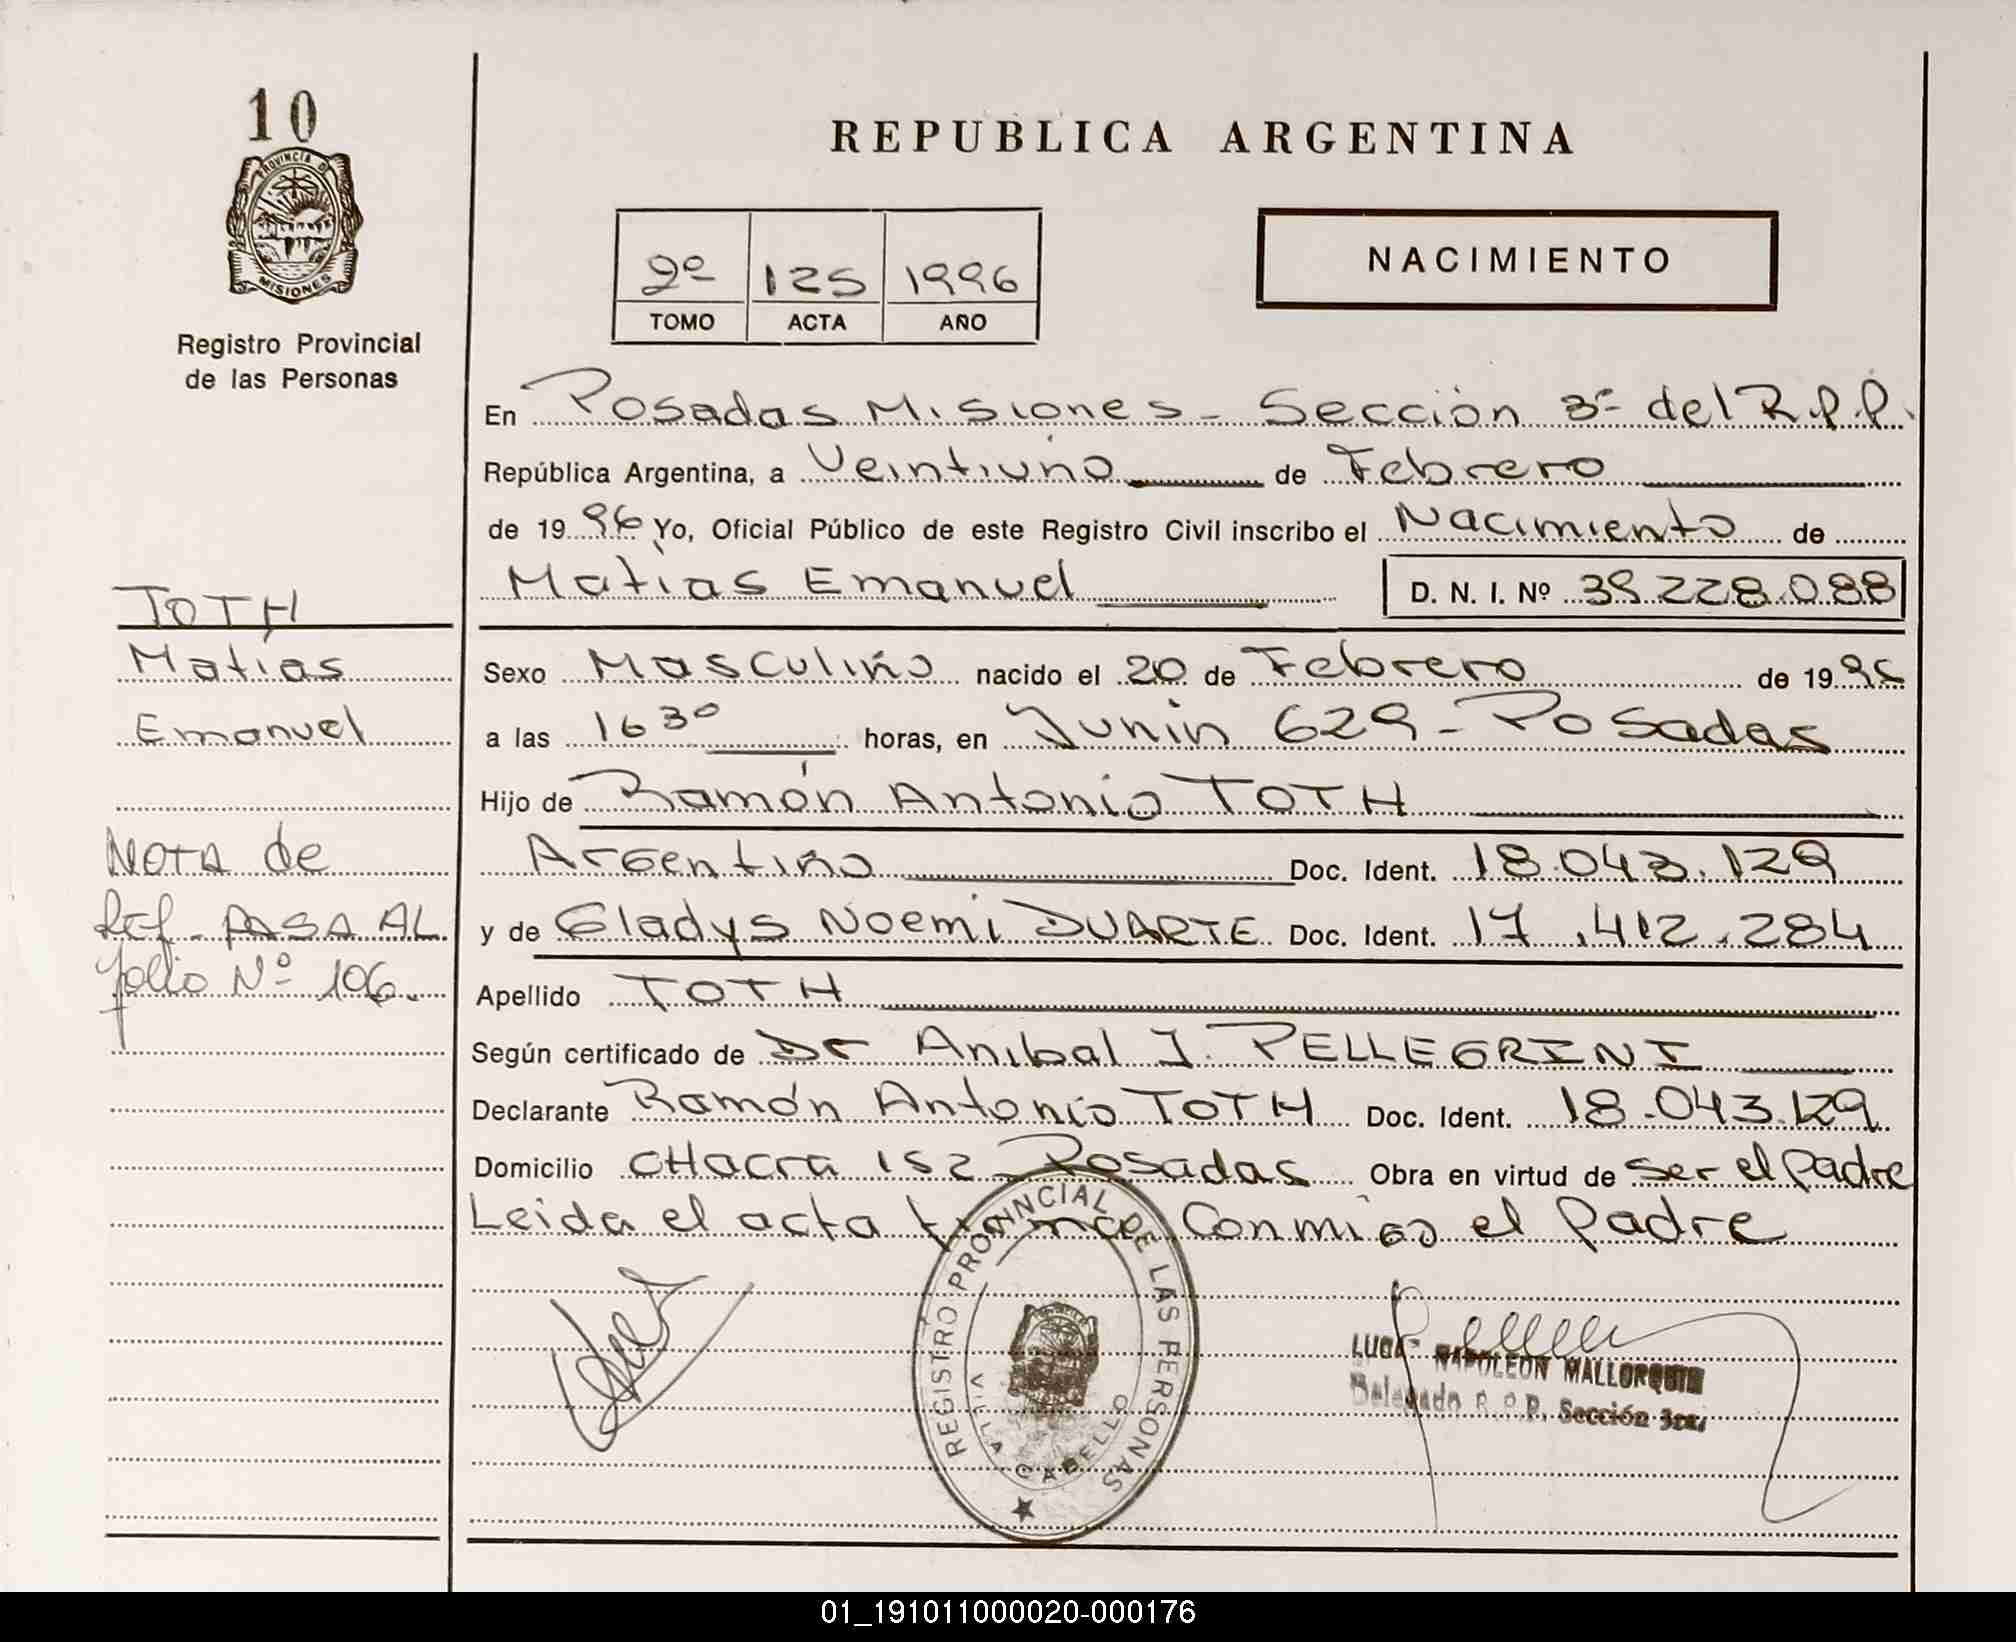 10
PROVINCIA DE
MISIONES
Registro Provincial
de las Personas
REPUBLICA ARGENTINA
2º 125 1996
TOMO ACTA AÑO
NACIMIENTO
En Posadas Misiones - Sección 3ª del R.P.P.
República Argentina, a Veintiuno de Febrero
de 1996 Yo, Oficial Público de este Registro Civil inscribo el Nacimiento de
Matías Emanuel D. N. I. Nº 39.228.088
Sexo Masculino nacido el 20 de Febrero de 1996
a las 16 30 horas, en Junin 629 - Posadas
Hijo de Ramón Antonio TOTH
Argentino Doc. Ident. 18.043.129
y de Gladys Noemi DUARTE Doc. Ident. 17.412.284
Apellido TOTH
Según certificado de Dr Anibal J. PELLEGRINI
Declarante Ramón Antonio TOTH Doc. Ident. 18.043.129
Domicilio CHacra 152 - Posadas Obra en virtud de ser el Padre
Leida el acta firmce Conmigo el Padre
TOTH
Matías
Emanuel
NOTA de
Ref - PASA AL
folio Nº 106.
REGISTRO PROVINCIAL DE LAS PERSONAS
VILLA CABELLO
NAPOLEON MALLORQUIN
Delegado R.P.P. Sección 3ra.
01_191011000020-000176